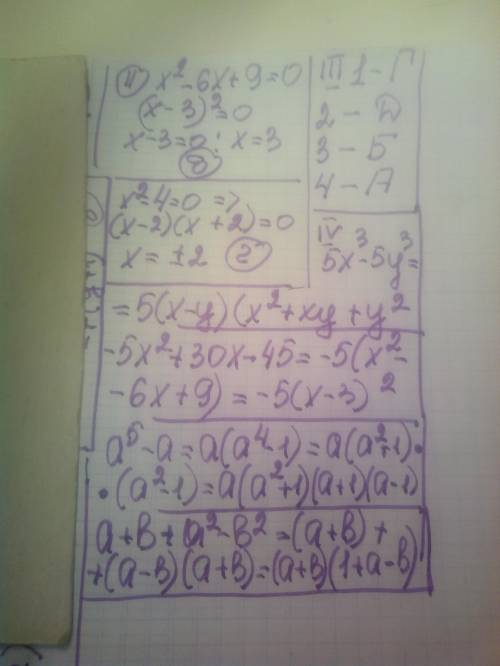 ④ x² - 6x + 9 = 0
(x - 3)² = 0
x - 3 = 0; x = 3
x² - 4 = 0 =>
(x - 2)(x + 2) = 0
x = ±2
III 1 - Г
2 - Д
3 - Б
4 - А
IV
5x³ - 5y³ =
= 5(x - y)(x² + xy + y²
-5x² + 30x - 45 = -5(x² -
- 6x + 9) = -5(x - 3)²
a⁵ - a = a(a⁴ - 1) = a(a² + 1) •
• (a² - 1) = a(a² + 1)(a + 1)(a - 1)
a + b + a² - b² = (a + b) +
+ (a - b)(a + b) = (a + b)(1 + a - b)